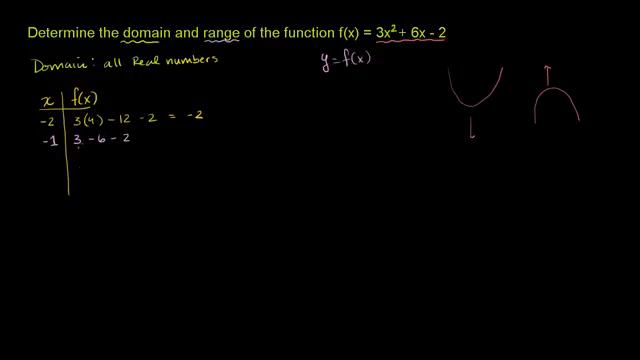 Determine the domain and range of the function f(x) = 3x² + 6x - 2
Domain: all Real numbers
y = f(x)
x f(x)
-2 3(4) - 12 - 2 = -2
-1 3 - 6 - 2